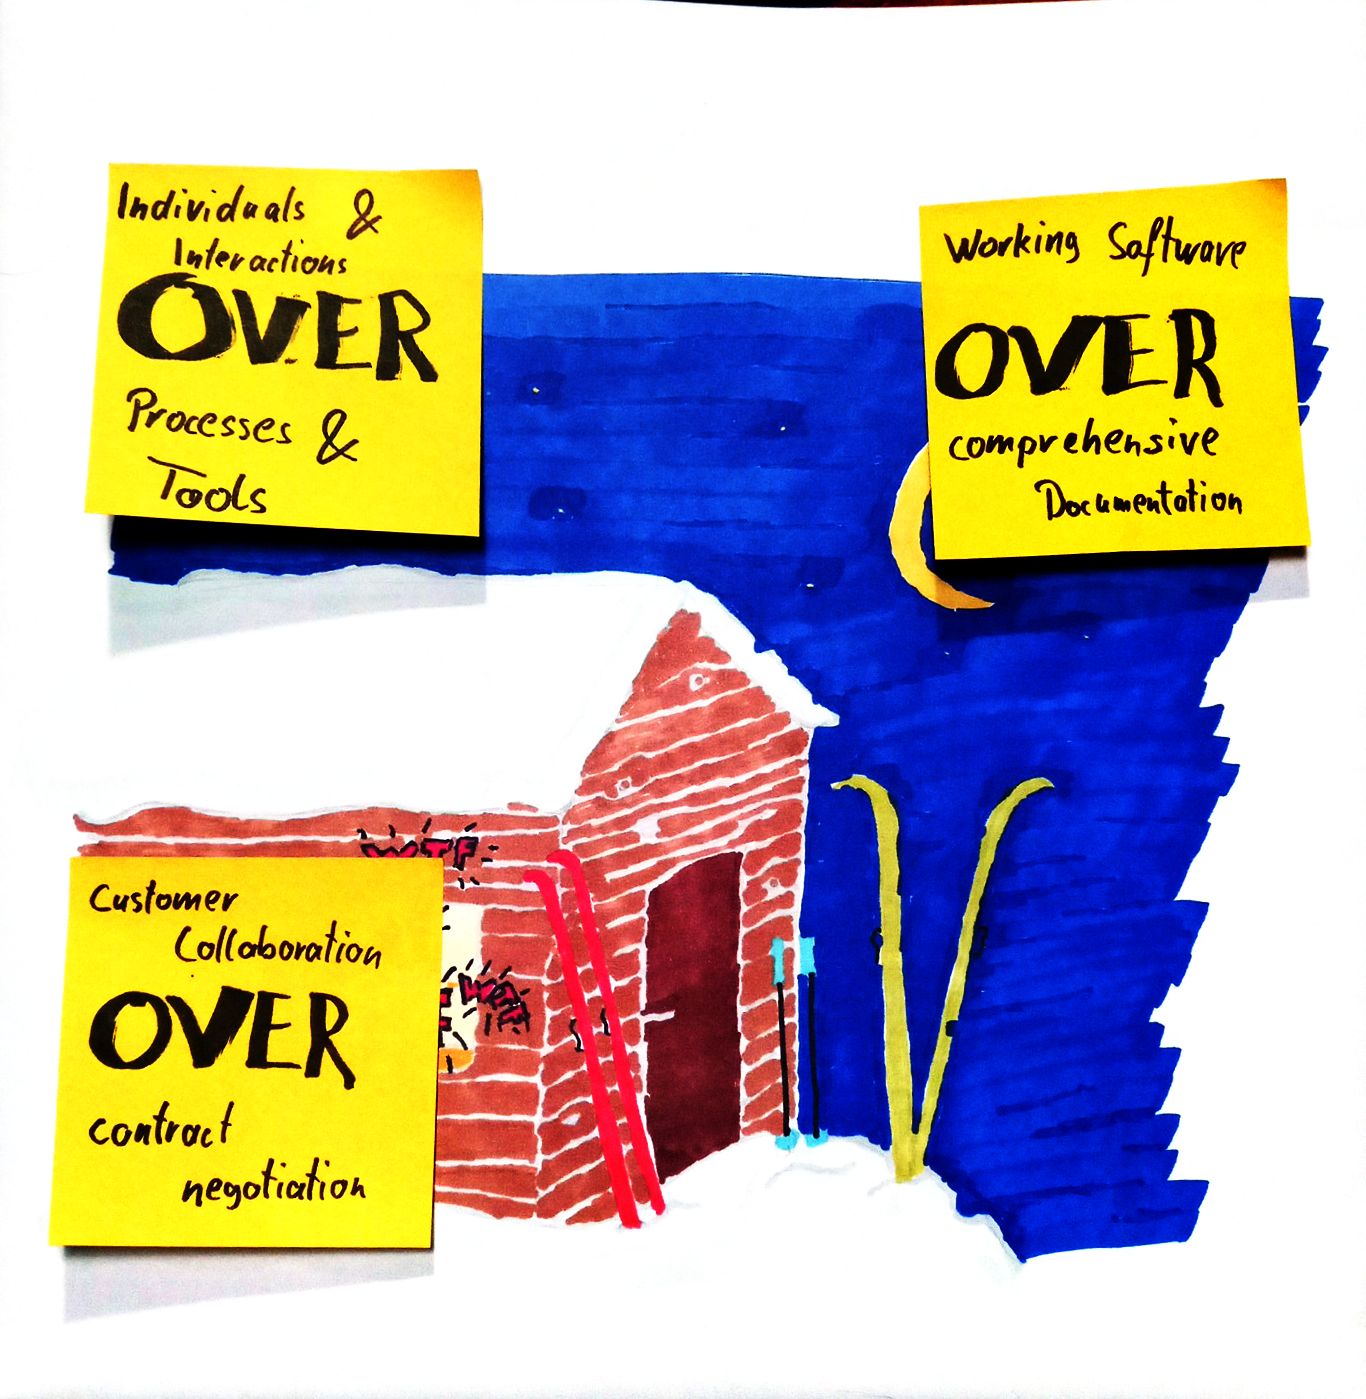 Individuals &
Interactions
OVER
Processes &
Tools
Working Software
OVER
comprehensive
Documentation
WTF
Customer
Collaboration
OVER
contract
negotiation
WTF